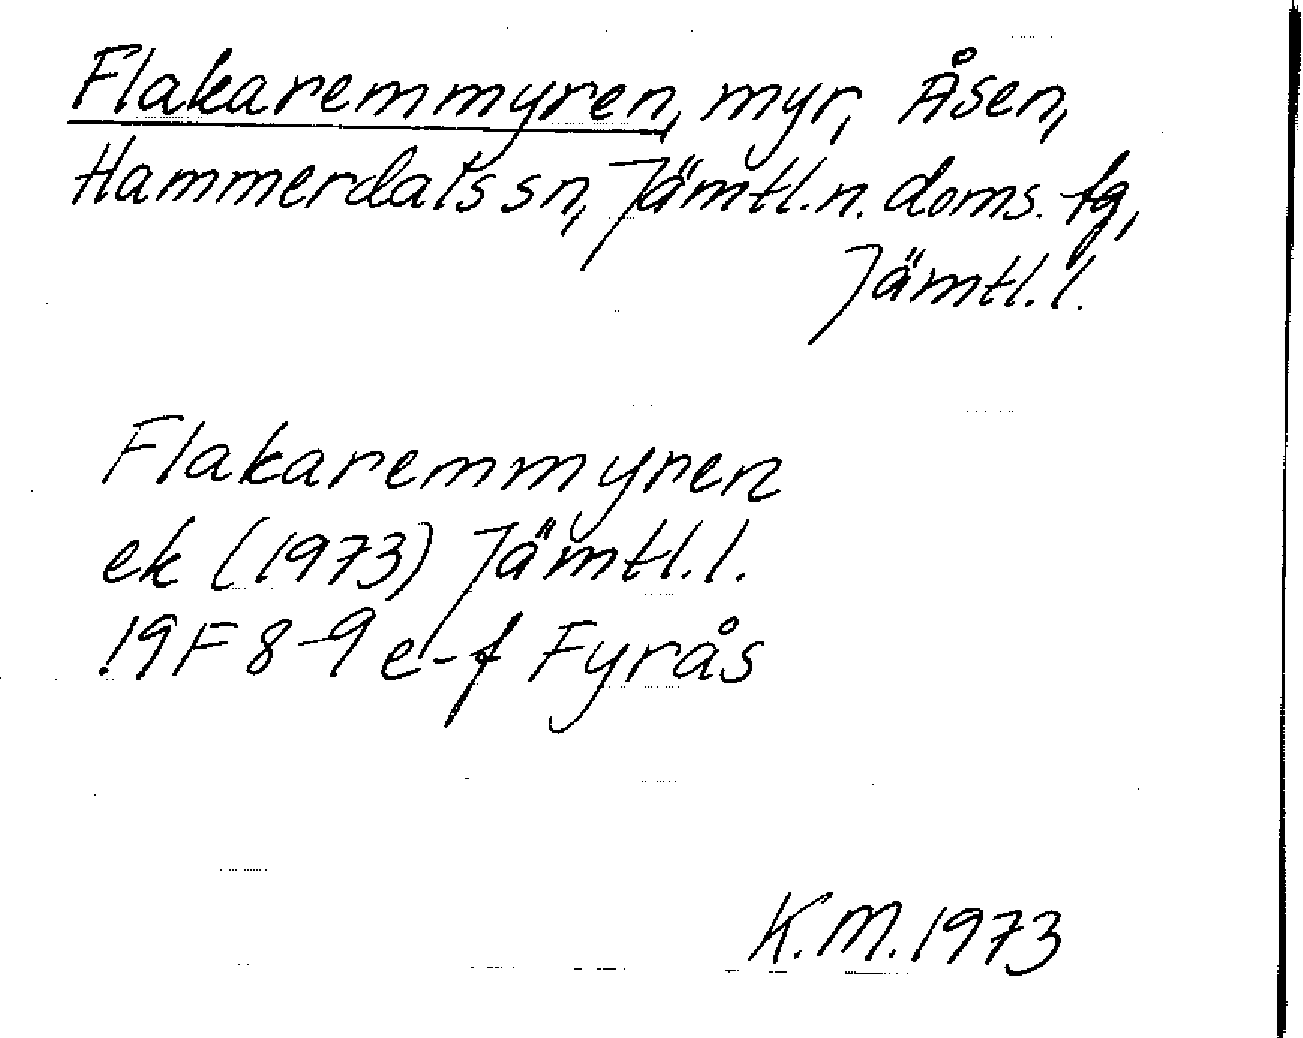 Flakaremmyren, myr, Åsen,
Hammerdals sn, Jämtl. n. doms. tg,
Jämtl. l.
Flakaremmyren
ek (1973) Jämtl. l.
19F 8-9 e-f Fyrås
K.M. 1973